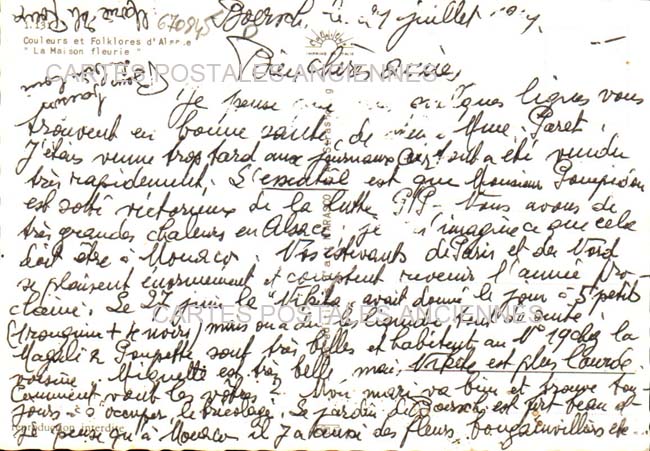 670845
Boersch, le 21 juillet
Couleurs et Folklores d'Alsace
" La Maison fleurie "
CARTES POSTALES ANCIENNES
Bien chers amis,
Je pense que ces quelques lignes vous
trouvent en bonne santé, de même Mme Paret.
J'étais venue trop tard aux journaux car tout a été vendu
très rapidement. L'essentiel est que Monsieur Pompidou
est sorti victorieux de la lutte. Nous avons de
très grandes chaleurs en Alsace, je m'imagine ce que cela
doit être à Monaco. Nos estivants de Paris et du Nord
se plaisent énormément et comptent revenir l'année pro-
chaine. Le 27 juin la "Nikita" avait donné le jour à 5 petits
CARTES POSTALES ANCIENNES
mais on a dû les
Magali & Poupette sont très belles et habitent au N° 19 chez la
voisine. Mignonette est très belle mais est plus lourde
Comment vont les vôtres ? Mon mari va bien et trouve tou-
jours à s'occuper, le bricolage. Le jardin de Boersch est fort beau et
je pense qu'à Monaco il y a aussi des fleurs, bougainvilliers etc
reproduction interdite